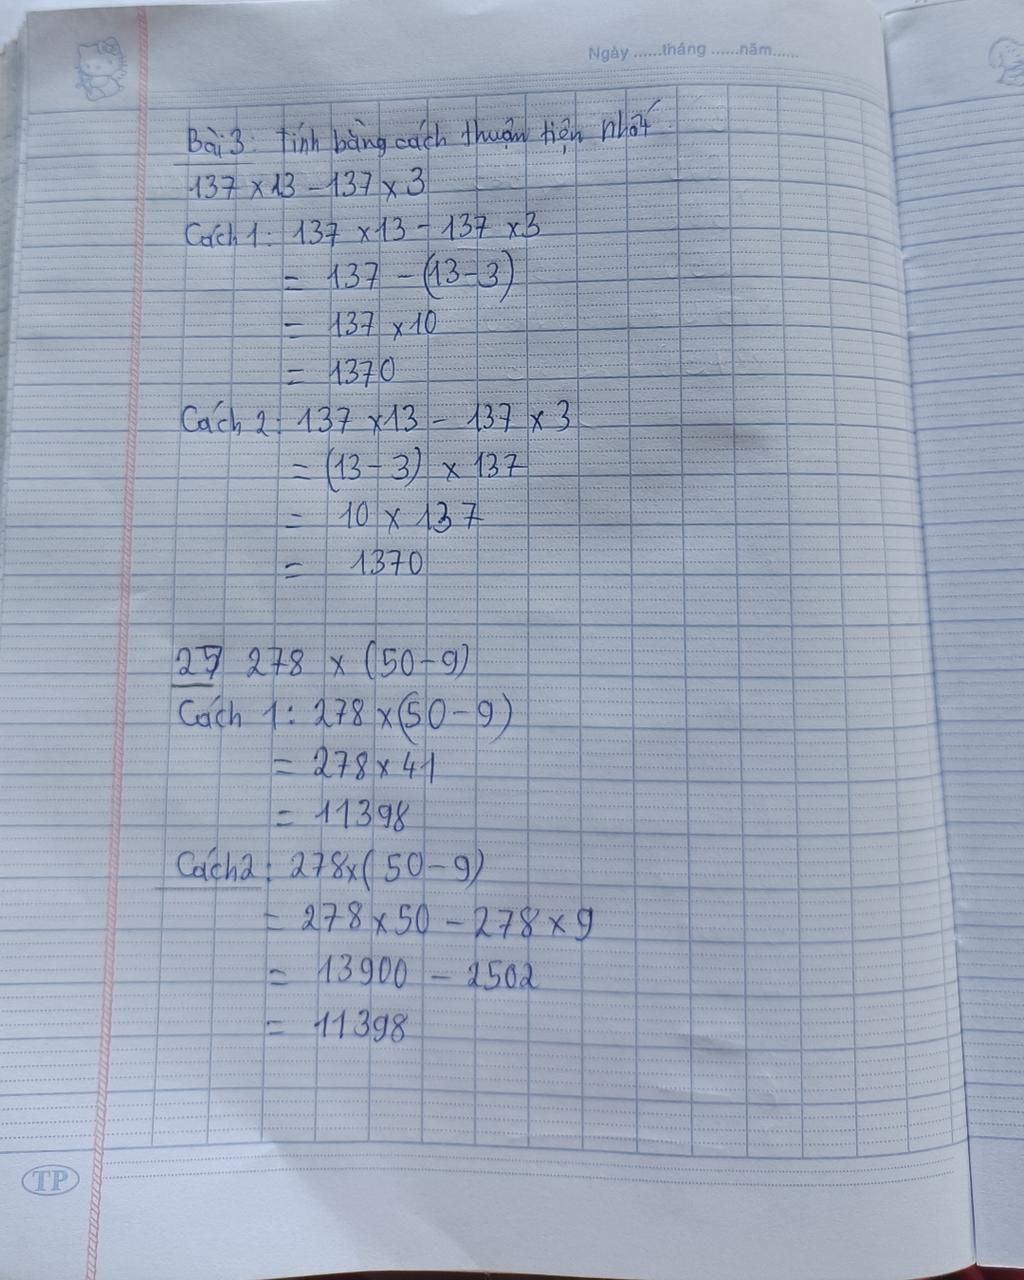 Ngày ......tháng ......năm......
Bài 3: Tính bằng cách thuận tiện nhất.
137 x 13 - 137 x 3
Cách 1: 137 x 13 - 137 x 3
= 137 - (13 - 3)
= 137 x 10
= 1370
Cách 2: 137 x 13 - 137 x 3
= (13 - 3) x 137
= 10 x 137
= 1370
278 x (50 - 9)
Cách 1: 278 x (50 - 9)
= 278 x 41
= 11398
Cách 2: 278 x (50 - 9)
= 278 x 50 - 278 x 9
= 13900 - 2502
= 11398
TP